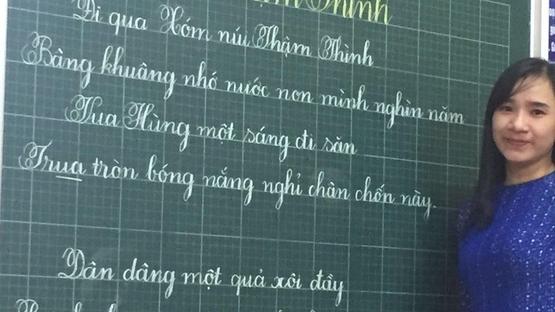 Thình
Đi qua Xóm núi Thậm Thình
Bâng khuâng nhớ nước non mình nghìn năm
Vua Hùng một sáng đi săn
Trưa tròn bóng nắng nghỉ chân chốn này.
Dân dâng một quả xôi đầy